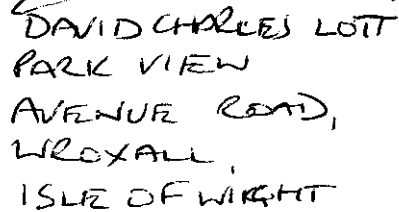 DAVID CHARLES LOTT
PARK VIEW
AVENUE ROAD,
WROXALL,
ISLE OF WIGHT